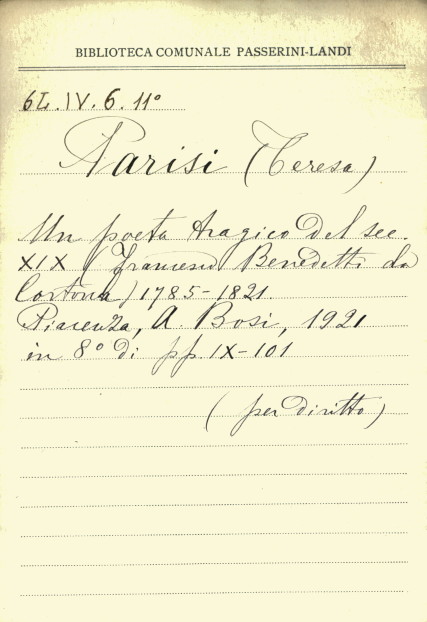 BIBLIOTECA COMUNALE PASSERINI-LANDI
6L.IV.6.11°
Parisi (Teresa)
Un poeta tragico del sec.
XIX (Francesco Benedetti da
Cortona) 1785-1821.
Piacenza, A. Bosi, 1921
in 8° di pp. IX-101
(per diritto)